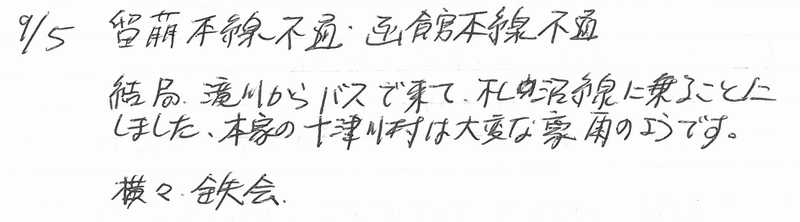 9/5 留萌本線不通・函館本線不通
結局、滝川からバスで来て、札沼線に乗ることに
しました、本家の十津川村は大変な豪雨のようです。
横々 鉄会.